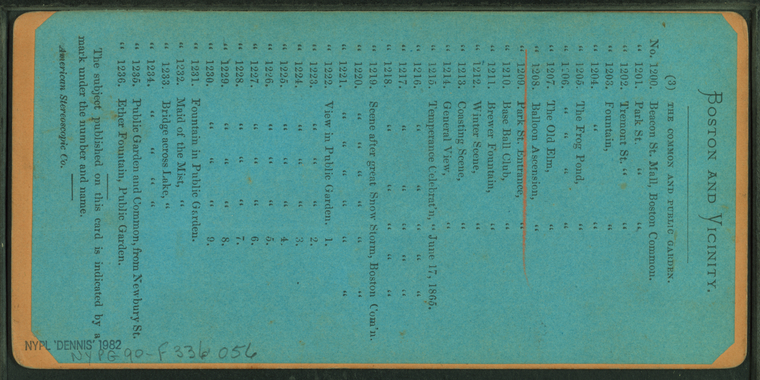 BOSTON AND VICINITY.
(3) THE COMMON AND PUBLIC GARDEN.
No. 1200. Beacon St. Mall, Boston Common.
" 1201. Park St. " "
" 1202. Tremont St. " "
" 1203. Fountain, "
" 1204. " "
" 1205. The Frog Pond, "
" 1206. " " " "
" 1207. The Old Elm, "
" 1208. Balloon Ascension, "
" 1209. Park St. Entrance, "
" 1210. Base Ball Club, "
" 1211. Brewer Fountain, "
" 1212. Winter Scene, "
" 1213. Coasting Scene, "
" 1214. General View, "
" 1215. Temperance Celebrat'n, " June 17, 1865.
" 1216. " " " "
" 1217. " " " "
" 1218. " " " "
" 1219. Scene after great Snow Storm, Boston Com'n.
" 1220. " " " " "
" 1221. " " " " "
" 1222. View in Public Garden. 1.
" 1223. " " " 2.
" 1224. " " " 3.
" 1225. " " " 4.
" 1226. " " " 5.
" 1227. " " " 6.
" 1228. " " " 7.
" 1229. " " " 8.
" 1230. " " " 9.
" 1231. Fountain in Public Garden.
" 1232. Maid of the Mist, "
" 1233. Bridge across Lake, "
" 1234. " " " "
" 1235. Public Garden and Common, from Newbury St.
" 1236. Ether Fountain, Public Garden.
The subject published on this card is indicated by a
mark under the number and name.
American Stereoscopic Co.
NYPL 'DENNIS' 1982
NYPG 90-F336 056